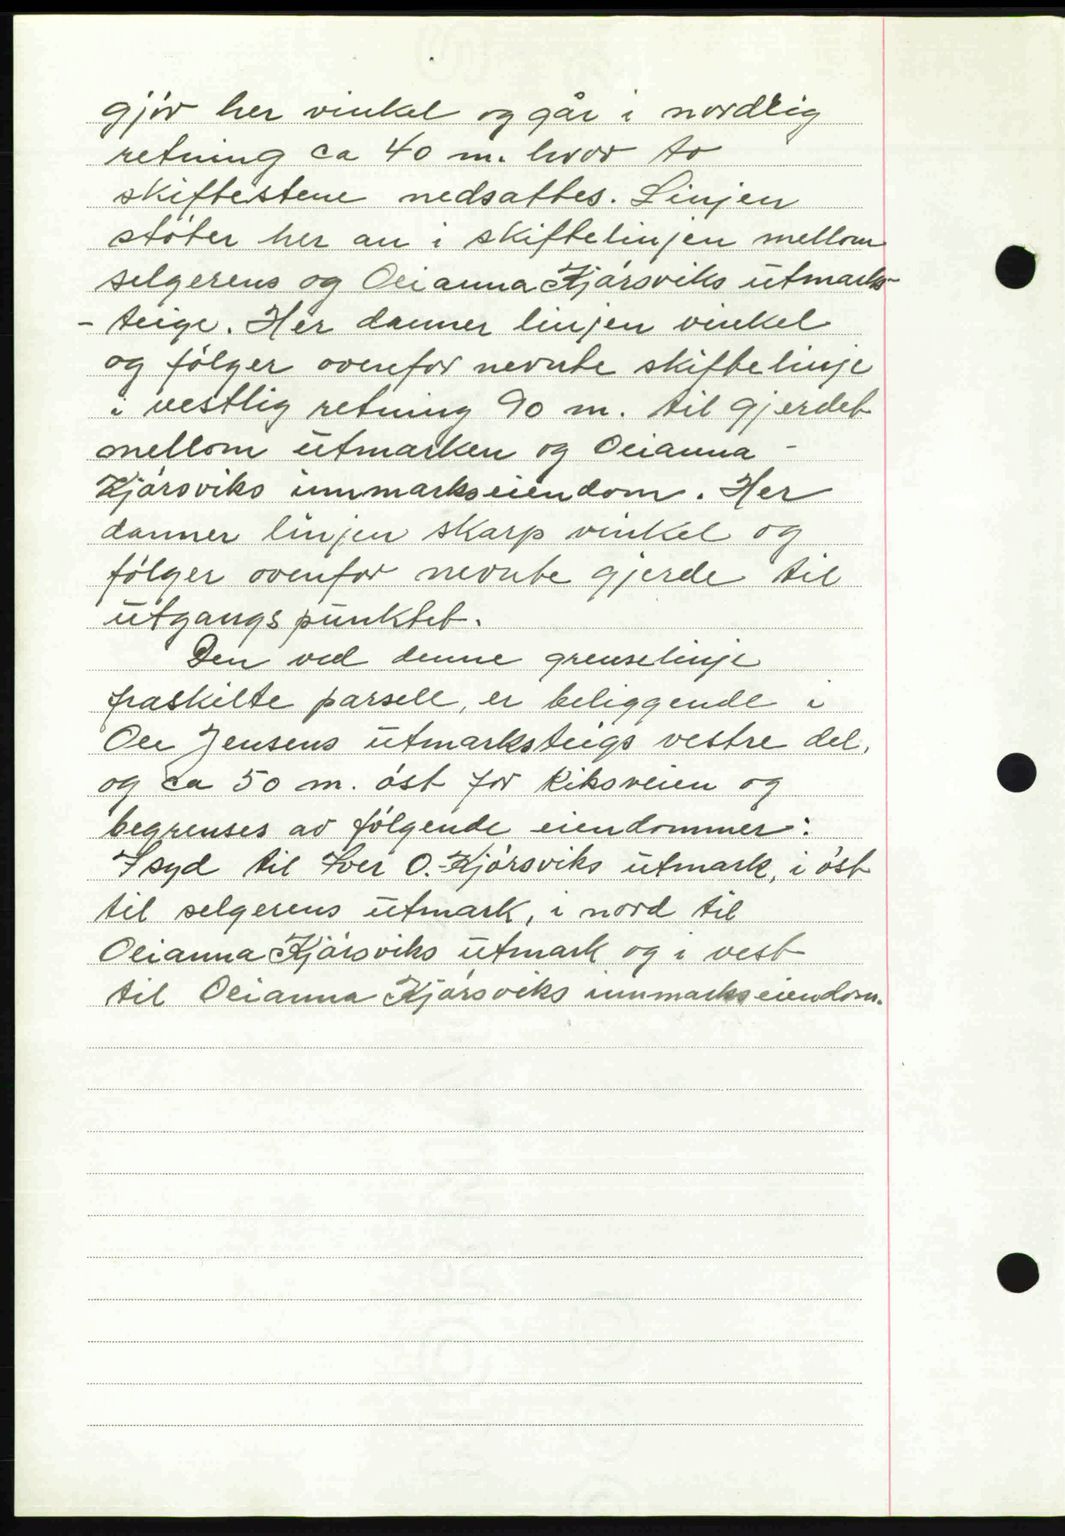 gjör her vinkel og går i nordlig
retning ca 40 m. hvor to
skiftestene nedsattes. Linjen
stöter her an i skiftelinjen mellom
selgerens og Oleanna Kjörsviks utmarks-
- teige. Her danner linjen vinkel
og fölger ovenfor nevnte skiftelinje
i vestlig retning 90 m. til gjerdet
mellom utmarken og Oleanna -
Kjörsviks innmarkseiendom. Her
danner linjen skarp vinkel og
fölger ovenfor nevnte gjerde til
utgangspunktet.
Den ved denne grenselinje
fraskilte parsell, er beliggende i
Ole Jensens utmarksteigs vestre del,
og ca 50 m. öst for Riksveien og
begrenses av fölgende eiendommer:
I syd til Iver O. Kjörsviks utmark, i öst
til selgerens utmark, i nord til
Oleanna Kjörsviks utmark og i vest
til Oleanna Kjörsviks innmarkseiendom.